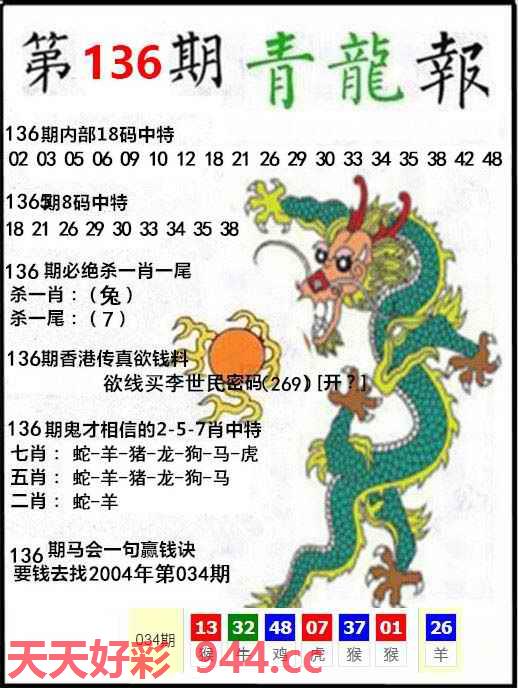 第136期青龍報
136期内部18码中特
02 03 05 06 09 10 12 18 21 26 29 30 33 34 35 38 42 48
136期8码中特
18 21 26 29 30 33 34 35 38
136期必绝杀一肖一尾
杀一肖：（兔）
杀一尾：（7）
136期香港传真欲钱料
欲线买李世民密码(269) [开？]
136期鬼才相信的2-5-7肖中特
七肖：蛇-羊-猪-龙-狗-马-虎
五肖：蛇-羊-猪-龙-狗-马
二肖：蛇-羊
136期马会一句赢钱诀
要钱去找2004年第034期
034期 13 32 48 07 37 01 26
猴 牛 鸡 虎 猴 猴 羊
天天好彩 944.cc